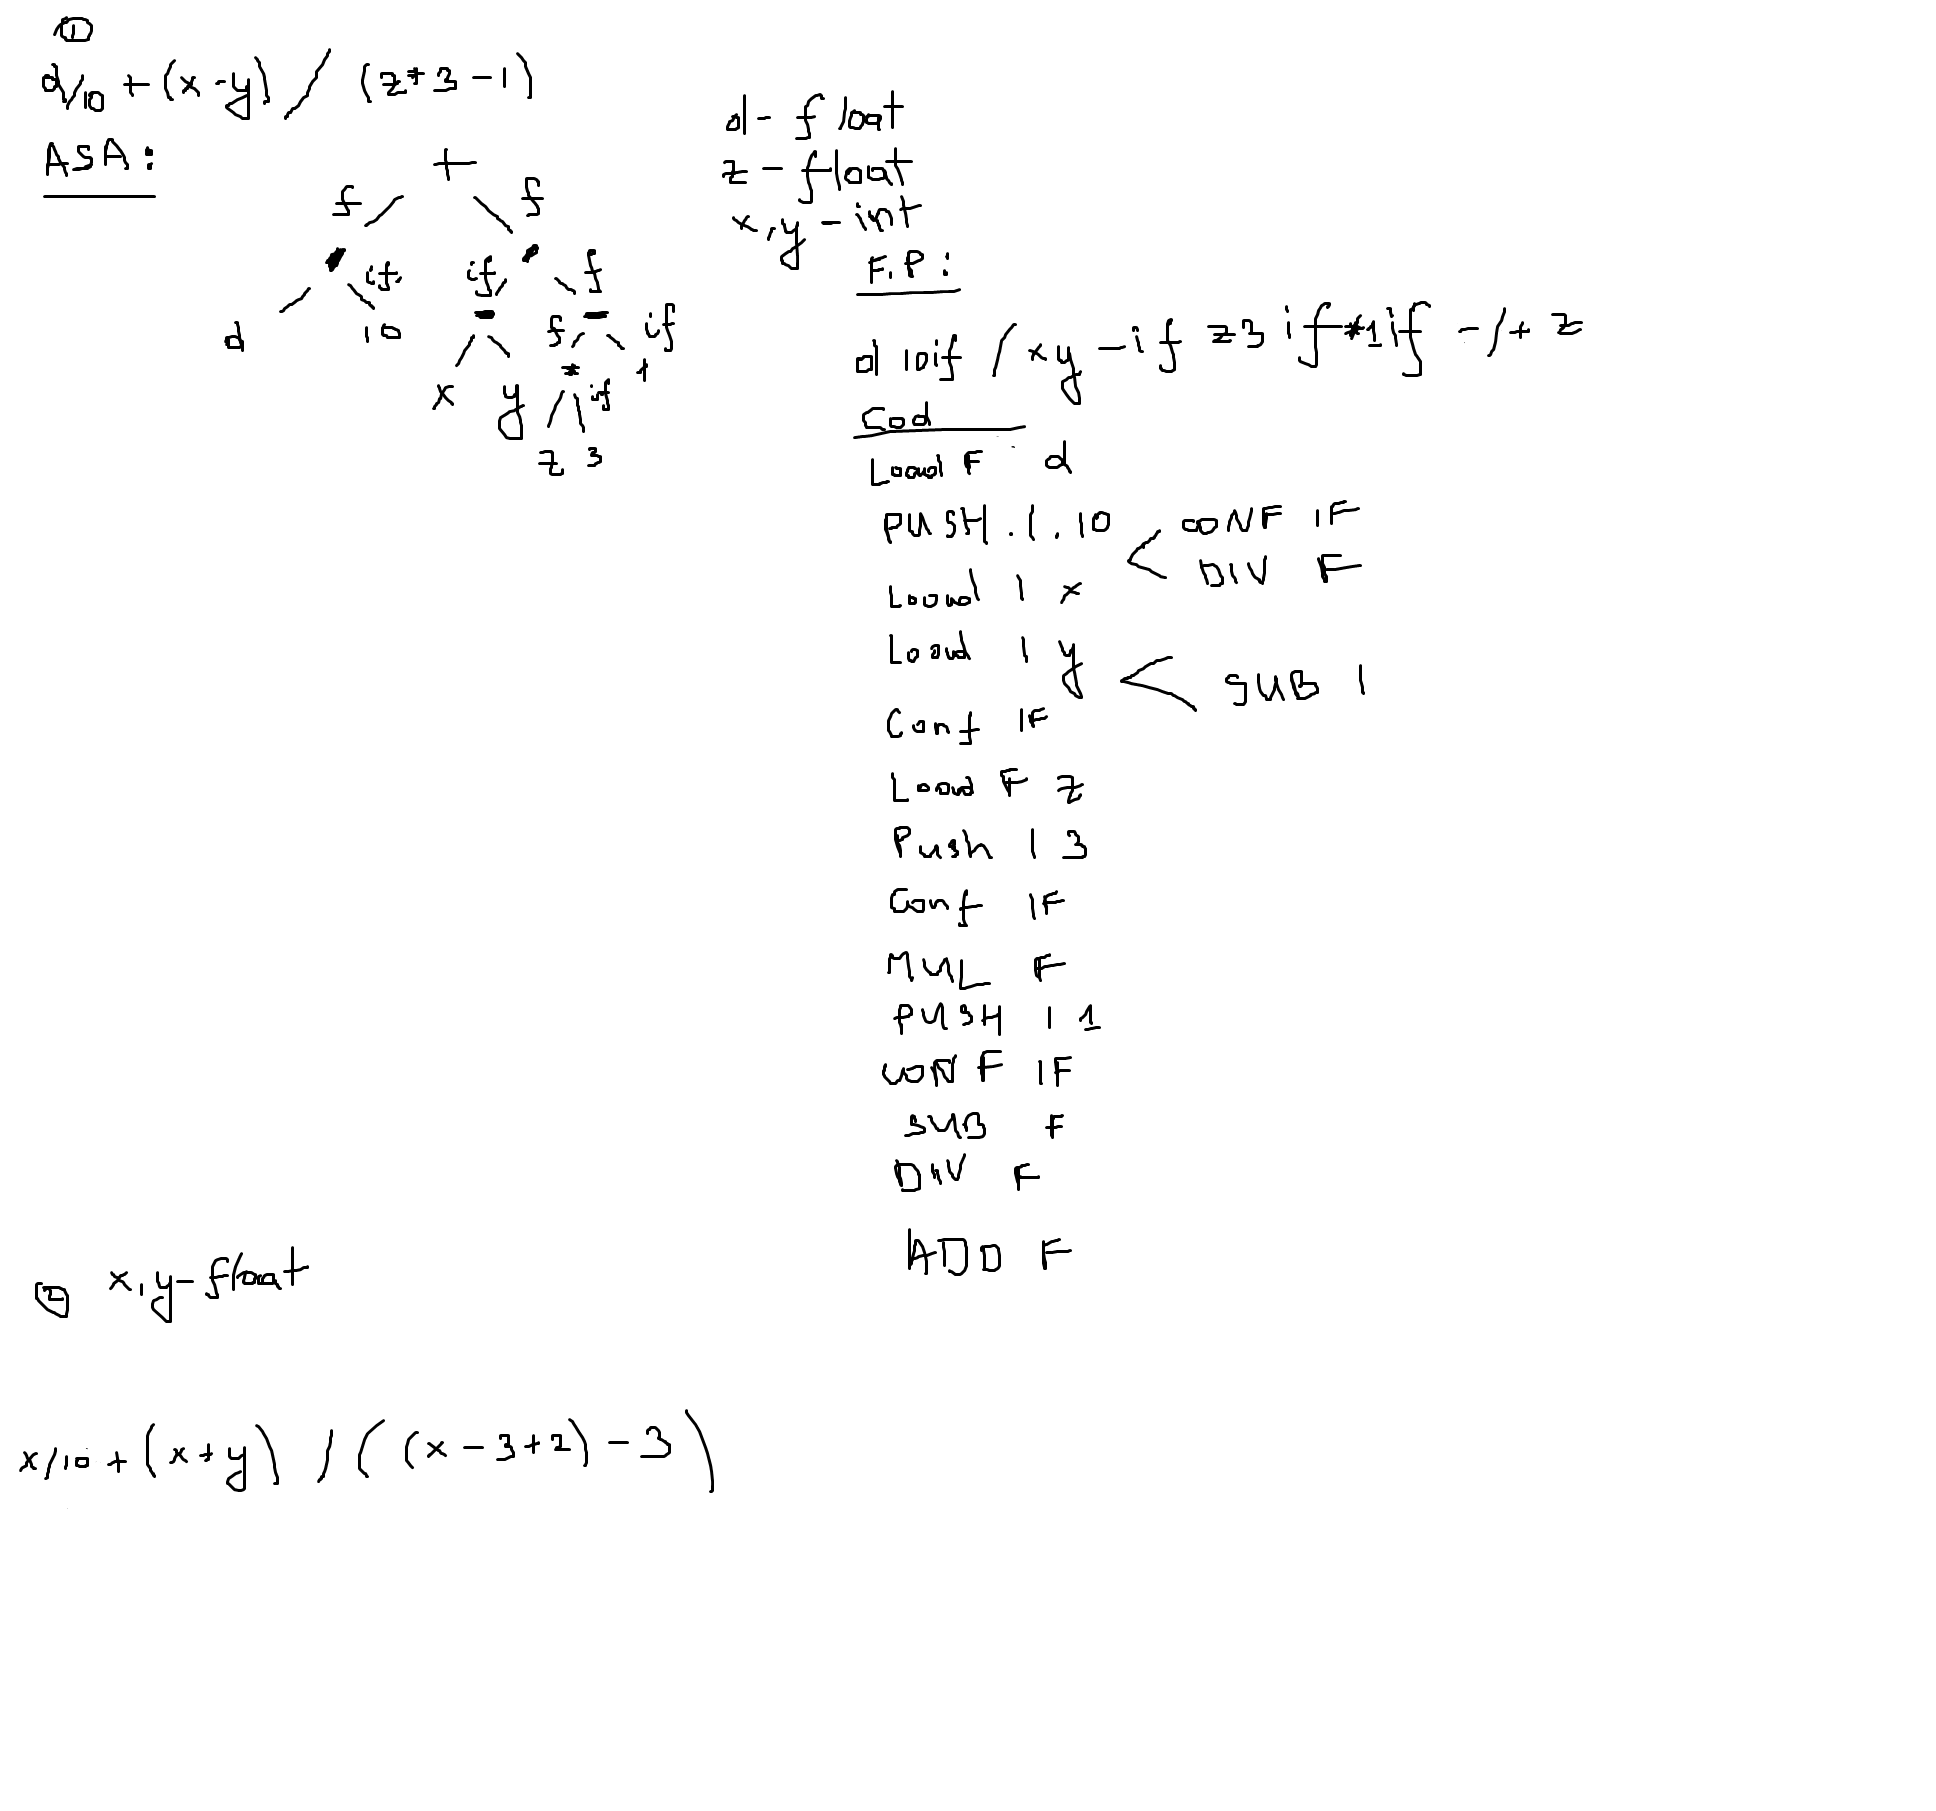 ①
d/10 + (x - y) / (z * 3 - 1)
ASA:
+
f f
if if f
d 10 - - f if
x y * if 1
z 3
d - float
z - float
x, y - int
F.P:
d 10if / xy - if z3 if * 1if - / + z
Cod
Load F d
PUSH . I . 10 < CONF IF
DIV F
Load I x
Load I y < SUB I
Conf IF
Load F z
Push I 3
Conf IF
MUL F
PUSH I 1
CONF IF
SUB F
DIV F
ADD F
② x, y - float
x/10 + (x + y) / ((x - 3 + 2) - 3)